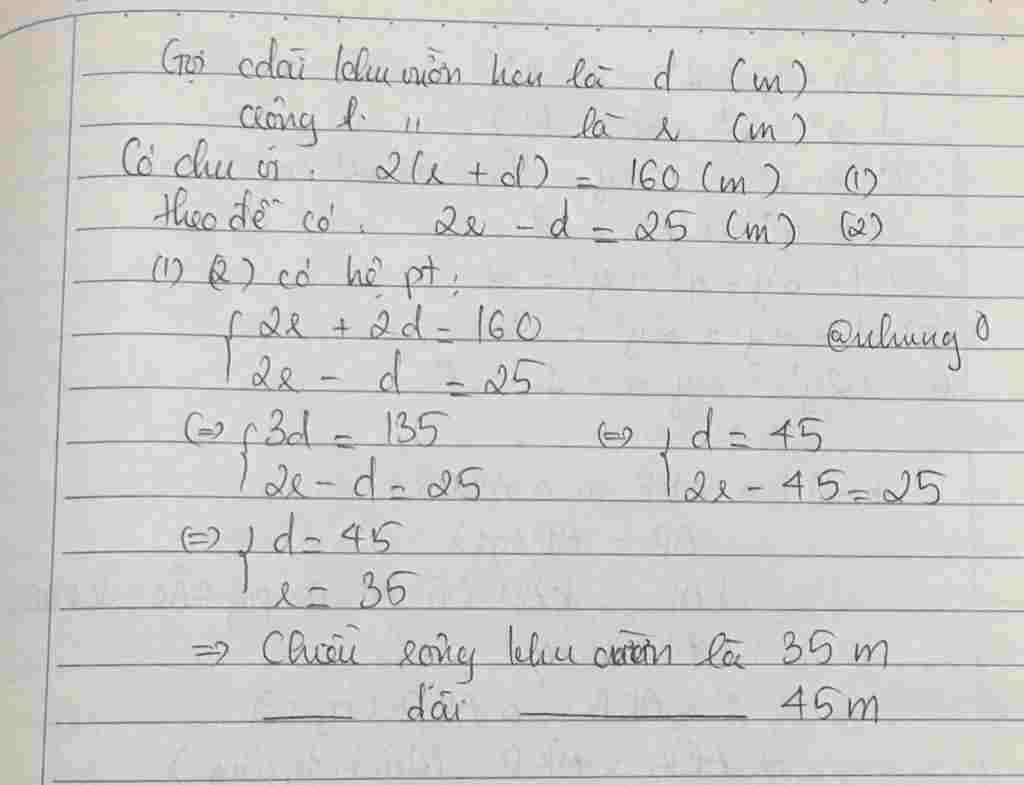 Gọi cdài khu vườn hcn là d (m)
crộng k. " là r (m)
Có chu vi : 2(r + d) = 160 (m) (1)
theo đề có : 2r - d = 25 (m) (2)
(1) (2) có hệ pt :
{ 2r + 2d = 160
@nhung
2r - d = 25
<=> { 3d = 135 <=> { d = 45
2r - d = 25 2r - 45 = 25
<=> { d = 45
r = 35
=> Chiều rộng khu vườn là 35 m
—— dài —— 45 m